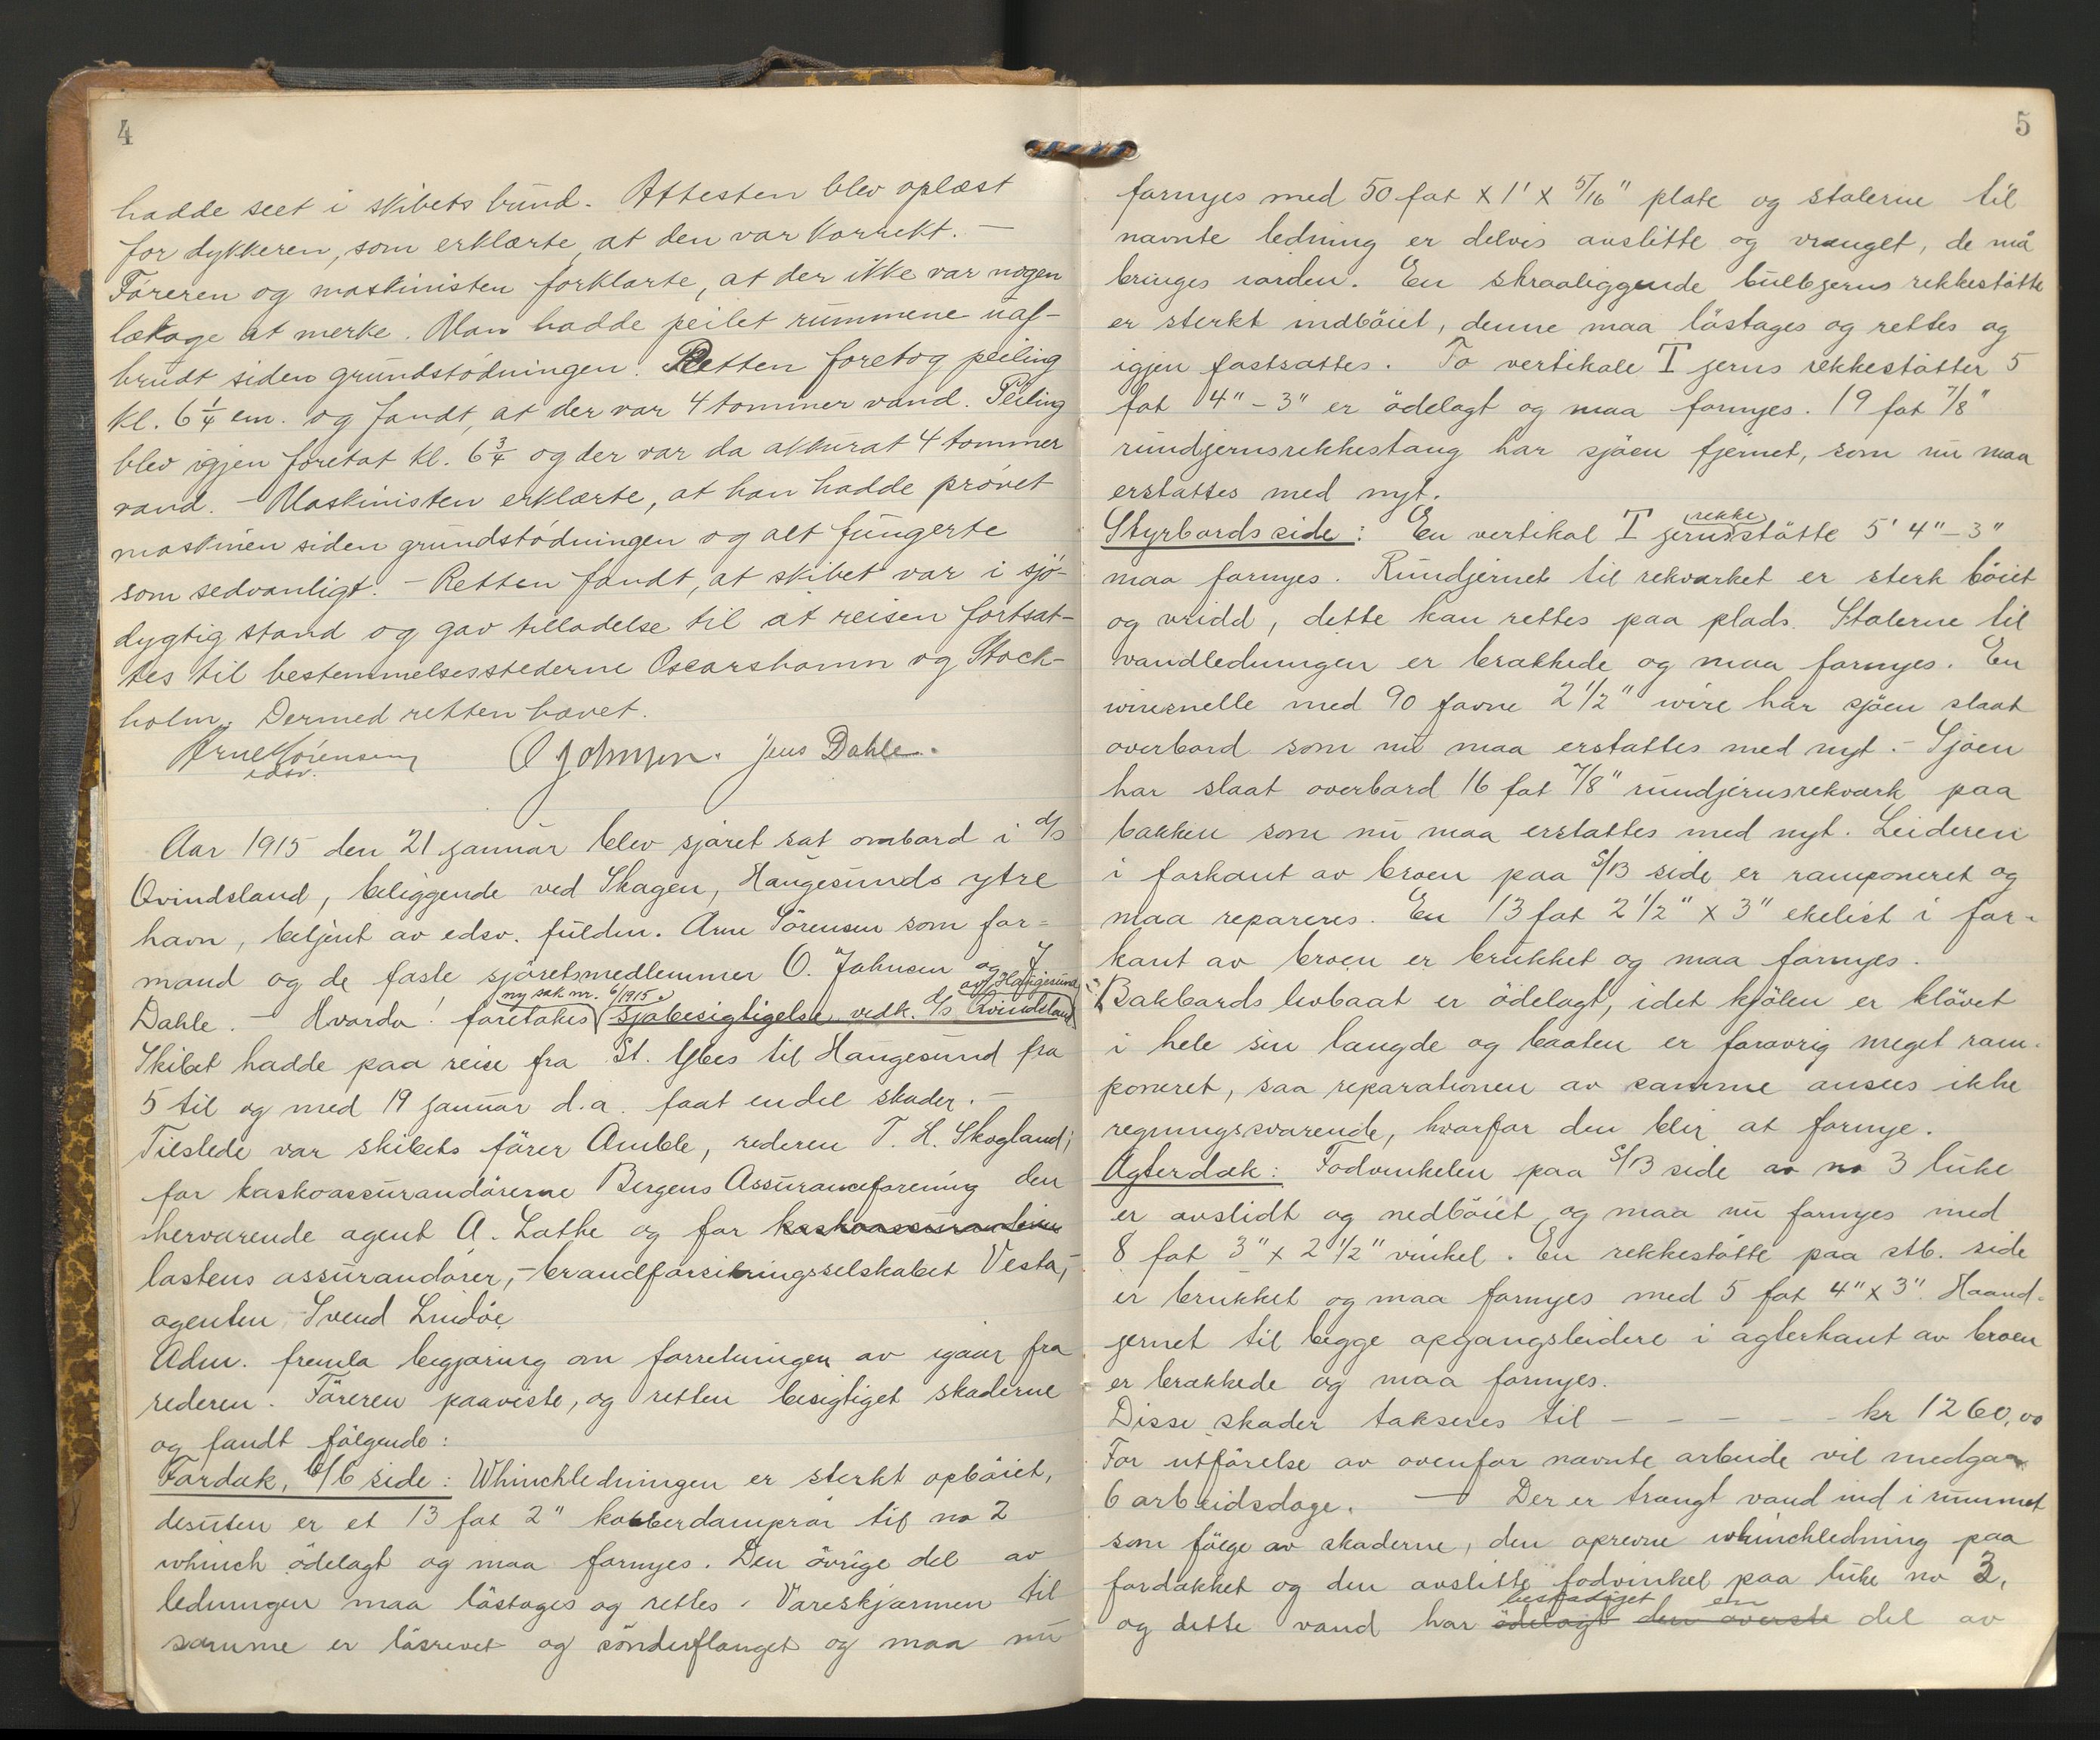 4
hadde seet i skibets bund. Attesten blev oplæst
for dykkeren, som erklærte, at den var korrekt. —
Føreren og maskinisten forklarte, at der ikke var nogen
lækage at merke. Man hadde peilet rummene uaf-
brudt siden grundstødningen. Retten foretog peiling
kl. 6 1/4 em. og fandt, at der var 4 tommer vand. Peiling
blev igjen foretat kl. 6 3/4 og der var da akkurat 4 tommer
vand. — Maskinisten erklærte, at han hadde prøvet
maskinen siden grundstødningen og alt fungerte
som sedvanligt. — Retten fandt, at skibet var i sjø-
dygtig stand og gav tilladelse til at reisen fortsat-
tes til bestemmelsesstederne Oscarshamn og Stock-
holm. Dermed retten hævet.
Arne Sørensen O Johnsen. Jens Dahle.
edsv.
Aar 1915 den 21 januar blev sjöret sat ombord i d/s
Qvindsland, beliggende ved Skagen, Haugesunds ytre
havn, betjent av edsv. fuldm. Arne Sörensen som for-
mand og de faste sjöretsmedlemmer O. Johnsen og J.
ny sak nr. 6/1915 av Haugesund
Dahle. — Hvorda! foretakes Sjøbesigtigelse vedk. d/s Qvindsland
Skibet hadde paa reise fra St. Ybes til Haugesund fra
5 til og med 19 januar d.a. faat endel skader. —
Tilstede var skibets förer Amble, rederen T. H. Skogland;
for kaskoassurandörerne Bergens Assuranceforening den
herværende agent A. Lothe og for kaskoassurandören
lastens assurandörer, - brandforsikringsselskabet Vesta, -
agenten Svend Lindöe
Adm. fremla begjæring om forretningen av igaar fra
rederen. Föreren paaviste, og retten besigtiget skaderne
og fandt fölgende:
Fordæk, b/b side: Whinchledningen er sterkt opböiet,
desuten er et 13 fot 2" kobberdamprör til no 2
whinch ödelagt og maa fornyes. Den övrige del av
ledningen maa löstages og rettes. Væreskjærmen til
samme er lösrevet og sönderflænget og maa nu
5
fornyes med 50 fot x 1' x 5/16" plate og stolerne til
nævnte ledning er delvis avslitte og vrænget, de må
bringes iorden. En skraaliggende bulbjerns rekkestötte
er sterkt indböiet, denne maa löstages og rettes og
igjen fastsættes. To vertikale T jerns rekkestötter 5
fot 4" - 3" er ödelagt og maa fornyes. 19 fot 7/8"
rundjernsrekkestang har sjöen fjernet, som nu maa
erstattes med nyt.
rekke
Styrbords side: En vertikal T jernsstötte 5' 4" - 3"
maa fornyes. Rundjernet til rekværket er sterk böiet
og vridd, dette kan rettes paa plads. Stolerne til
vandledningen er brækkede og maa fornyes. En
wiresnelle med 90 favne 2 1/2" wire har sjöen slaat
overbord som nu maa erstattes med nyt. - Sjöen
har slaat overbord 16 fot 7/8" rundjernsrekværk paa
bakken som nu maa erstattes med nyt. Leideren
i forkant av broen paa S/B side er ramponeret og
maa repareres. En 13 fot 2 1/2" x 3" ekelist i for-
kant av broen er brukket og maa fornyes.
Bakbords livbaat er ödelagt, idet kjölen er klövet
i hele sin længde og baaten er forövrig meget ram-
poneret, saa reparationen av samme ansees ikke
regningssvarende, hvorfor den blir at fornye.
Agterdæk: Fodvinkelen paa S/B side av no 3 luke
er avslidt og nedböiet og maa nu fornyes med
8 fot 3" x 2 1/2" vinkel. En rekkestötte paa stb. side
er brukket og maa fornyes med 5 fot 4" x 3". Haand-
jernet til begge opgangsleidere i agterkant av broen
er brækkede og maa fornyes.
Disse skader takseres til - - - - - kr 1260,00
For utförelse av ovenfor nævnte arbeide vil medgaa
6 arbeidsdage. — Der er trængt vand ind i rummet
som fölge av skaderne, den oprevne whinchledning paa
fordækket og den avslitte fodvinkel paa luke no 3,
beskadiget en
og dette vand har ödelagt den överste del av